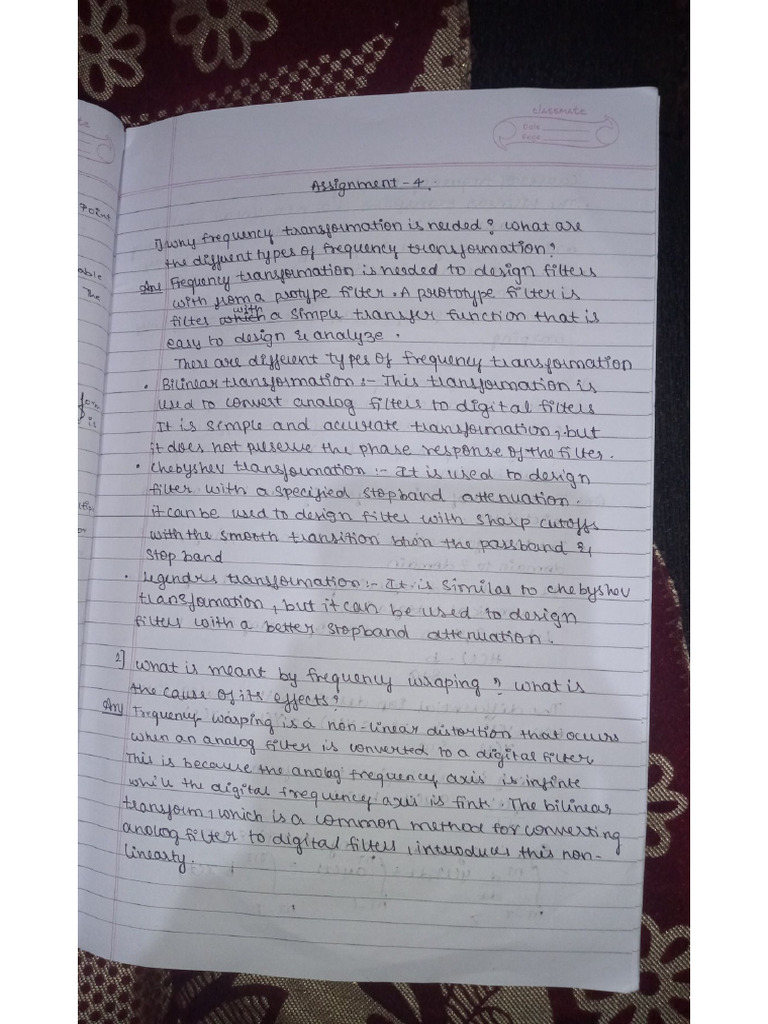 classmate
Date
Page
Point
able
The
is
Assignment - 4.
1) why frequency transformation is needed? what are
the different types of frequency transformation?
Ans Frequency transformation is needed to design filters
with from a protype filter. A prototype filter is
filter which with a simple transfer function that is
easy to design & analyze.
There are different types of frequency transformation
• Bilinear transformation :- This transformation is
used to convert analog filters to digital filters
It is simple and accurate transformation, but
it does not preserve the phase response of the filter.
• Chebyshev transformation :- It is used to design
filter with a specified stopband attenuation.
it can be used to design filter with sharp cutoffs
with the smooth transition btwn the passband &
stop band
• legendris transformation :- It is similar to chebyshev
transformation, but it can be used to design
filters with a better stopband attenuation.
2] what is meant by frequency wraping? what is
the cause of its effects?
Ans Frequency warping is a non-linear distortion that occurs
when an analog filter is converted to a digital filter
This is because the analog frequency axis is infinte
while the digital frequency axis is finte. The bilinear
transform, which is a common method for converting
analog filter to digital filters, introduces this non-
linearty.